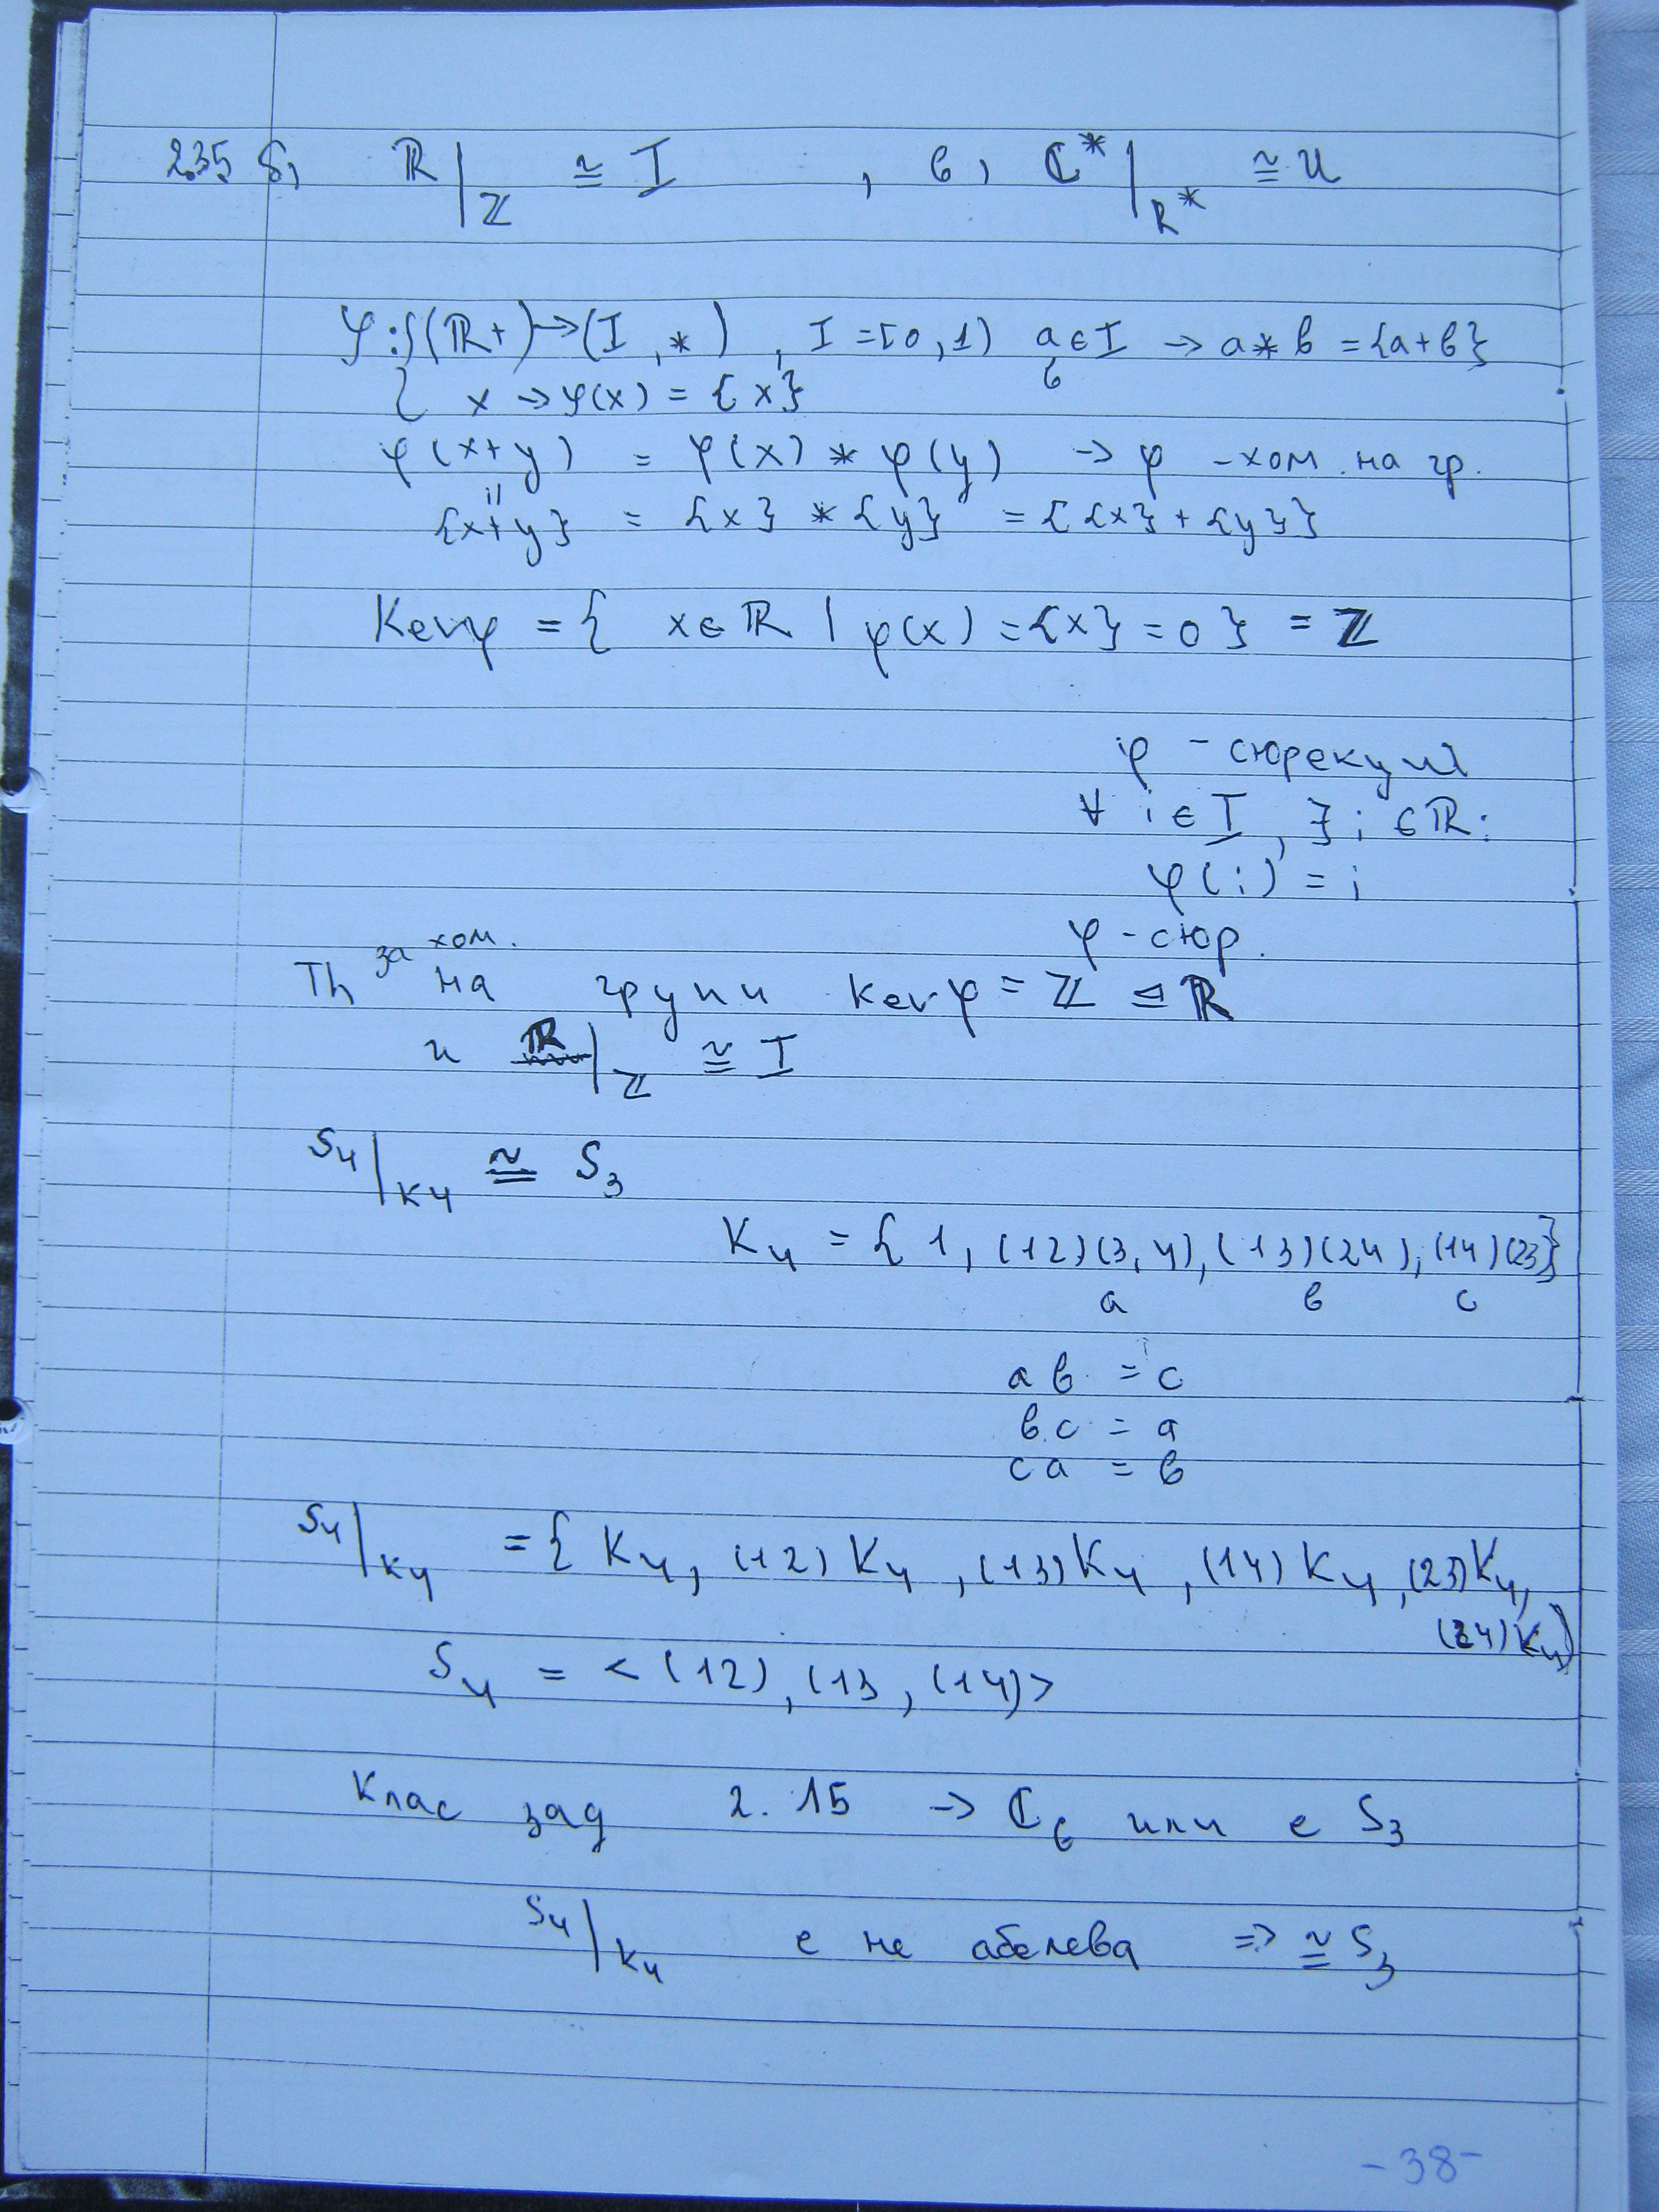 235 б, ℝ|ℤ ≅ I , в) ℂ*|ℝ* ≅ U
φ: { (ℝ+) → (I, *) , I = [0,1) a ∈ I → a * b = {a+b}
в
x → φ(x) = {x}
φ(x+y) = φ(x) * φ(y) → φ - хом. на гр.
||
{x+y} = {x} * {y} = {{x} + {y}}
Kerφ = { x ∈ ℝ | φ(x) = {x} = 0 } = ℤ
φ - сюрекция
∀ i ∈ I, ∃ i ∈ ℝ:
φ(i) = i
φ - сюр.
Th за хом. на групи kerφ = ℤ ⊴ ℝ
и ℝ|ℤ ≅ I
S4|K4 ≅ S3
K4 = { 1, (12)(3,4), (13)(24), (14)(23)}
a в c
a в = c
в.c = a
c a = в
S4|K4 = { K4, (12) K4, (13)K4, (14) K4, (23)K4,
(24) K4}
S4 = < (12), (13, (14)>
Клас зад 2.15 → ℂ6 или е S3
S4|K4 е не абелева => ≅ S3
-38-